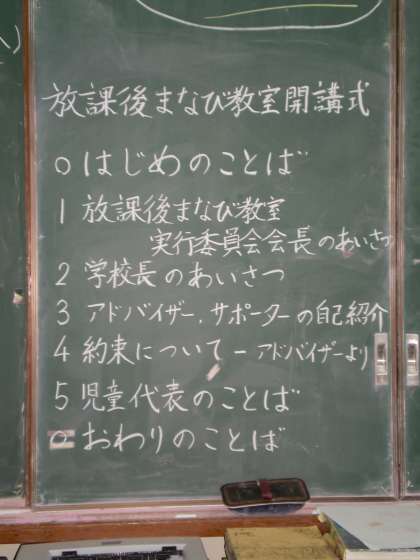 放課後まなび教室開講式
○はじめのことば
1 放課後まなび教室
実行委員会会長のあいさつ
2 学校長のあいさつ
3 アドバイザー、サポーターの自己紹介
4 約束について-アドバイザーより
5 児童代表のことば
○おわりのことば